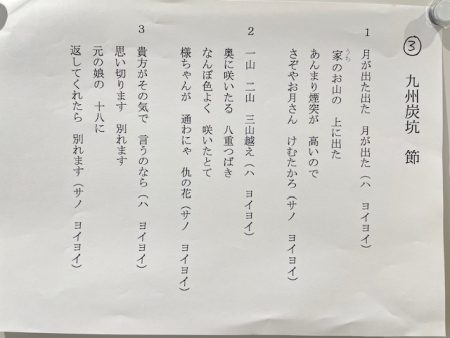 ③ 九州炭坑 節
1 月が出た出た 月が出た(ハ ヨイヨイ)
家のお山の 上に出た
うち
あんまり煙突が 高いので
さぞやお月さん けむたかろ(サノ ヨイヨイ)
2 一山 二山 三山越え(ハ ヨイヨイ)
奥に咲いたる 八重つばき
なんぼ色よく 咲いたとて
様ちゃんが 通わにゃ 仇の花(サノ ヨイヨイ)
3 貴方がその気で 言うのなら(ハ ヨイヨイ)
思い切ります 別れます
元の娘の 十八に
返してくれたら 別れます(サノ ヨイヨイ)